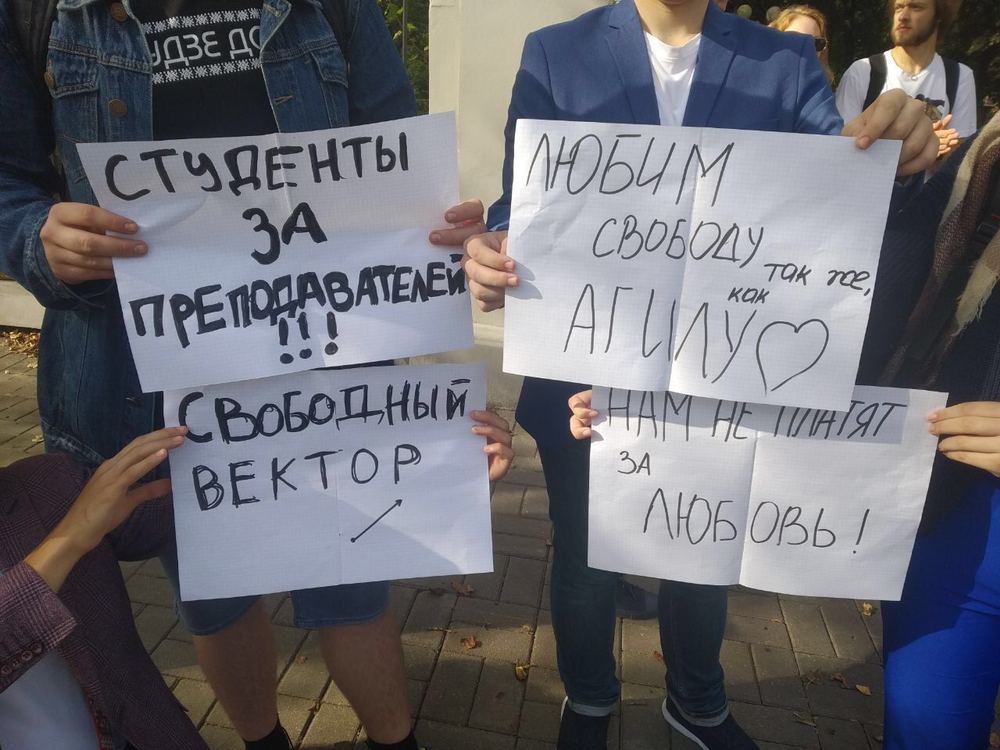 УДЗЕ ДО
СТУДЕНТЫ
ЗА
ПРЕПОДАВАТЕЛЕЙ
!!!
СВОБОДНЫЙ
ВЕКТОР
ЛЮБИМ
СВОБОДУ
так же,
как
АГИЛУ♡
НАМ НЕ ПЛАТЯТ
ЗА
ЛЮБОВЬ!